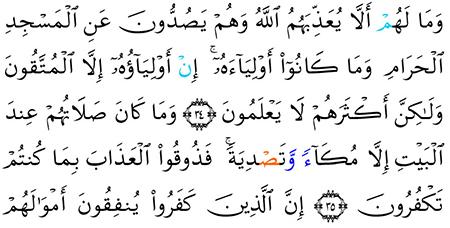 وَمَا لَهُمْ أَلَّا يُعَذِّبَهُمُ ٱللَّهُ وَهُمْ يَصُدُّونَ عَنِ ٱلْمَسْجِدِ
ٱلْحَرَامِ وَمَا كَانُوٓا۟ أَوْلِيَآءَهُۥٓ ۚ إِنْ أَوْلِيَآؤُهُۥٓ إِلَّا ٱلْمُتَّقُونَ
وَلَـٰكِنَّ أَكْثَرَهُمْ لَا يَعْلَمُونَ ﴿٣٤﴾ وَمَا كَانَ صَلَاتُهُمْ عِندَ
ٱلْبَيْتِ إِلَّا مُكَآءً وَّتَصْدِيَةً ۚ فَذُوقُوا۟ ٱلْعَذَابَ بِمَا كُنتُمْ
تَكْفُرُونَ ﴿٣٥﴾ إِنَّ ٱلَّذِينَ كَفَرُوا۟ يُنفِقُونَ أَمْوَٰلَهُمْ